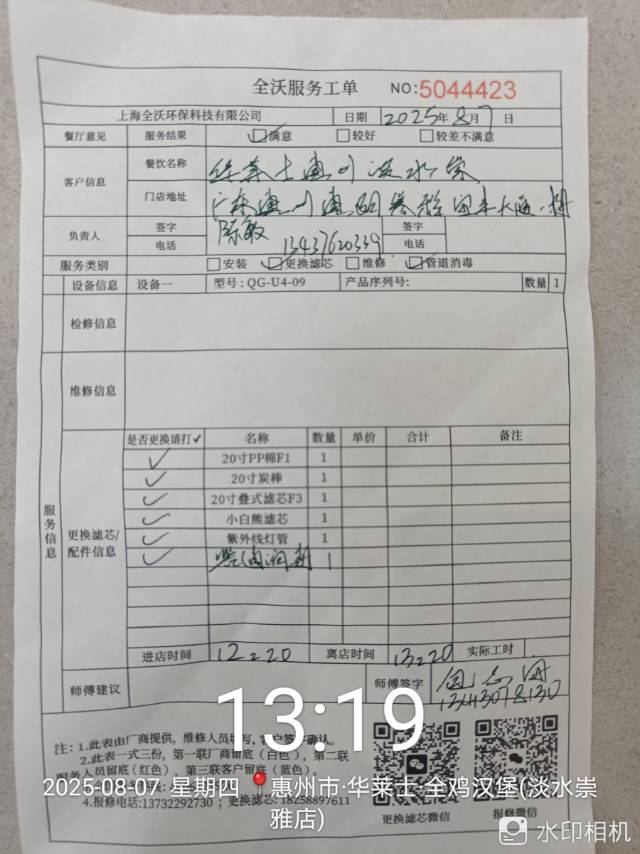 全沃服务工单 NO:5044423
上海全沃环保科技有限公司 日期 2025年8月7日
餐厅意见 服务结果 ☑满意 □较好 □较差不满意
客户信息 餐饮名称 华莱士惠州淡水崇
门店地址 广东惠州惠阳崇雅
负责人 签字 签字
电话 13437620339 电话
服务类别 □安装 ☑更换滤芯 □维修 ☑管道消毒
设备信息 设备一 型号:QG-U4-09 产品序列号: 数量 1
检修信息
维修信息
服务信息
更换滤芯/配件信息
是否更换请打✓ 名称 数量 单价 合计 备注
✓ 20寸PP棉F1 1
✓ 20寸炭棒 1
✓ 20寸叠式滤芯F3 1
✓ 小白熊滤芯 1
✓ 紫外线灯管 1
✓ 1
进店时间 12:20 离店时间 13:20 实际工时
师傅建议 师傅签字
注:1.此表由厂商提供,维修人员填写,客户签字确认。
2.此表一式三份,第一联厂商留底(白色),第二联
服务人员留底(红色),第三联客户留底(蓝色)。
4.报修电话:13732292730 ; 更换滤芯:18258897611
更换滤芯微信 报修微信
13:19
2025-08-07 星期四 惠州市·华莱士·全鸡汉堡(淡水崇
雅店)
水印相机